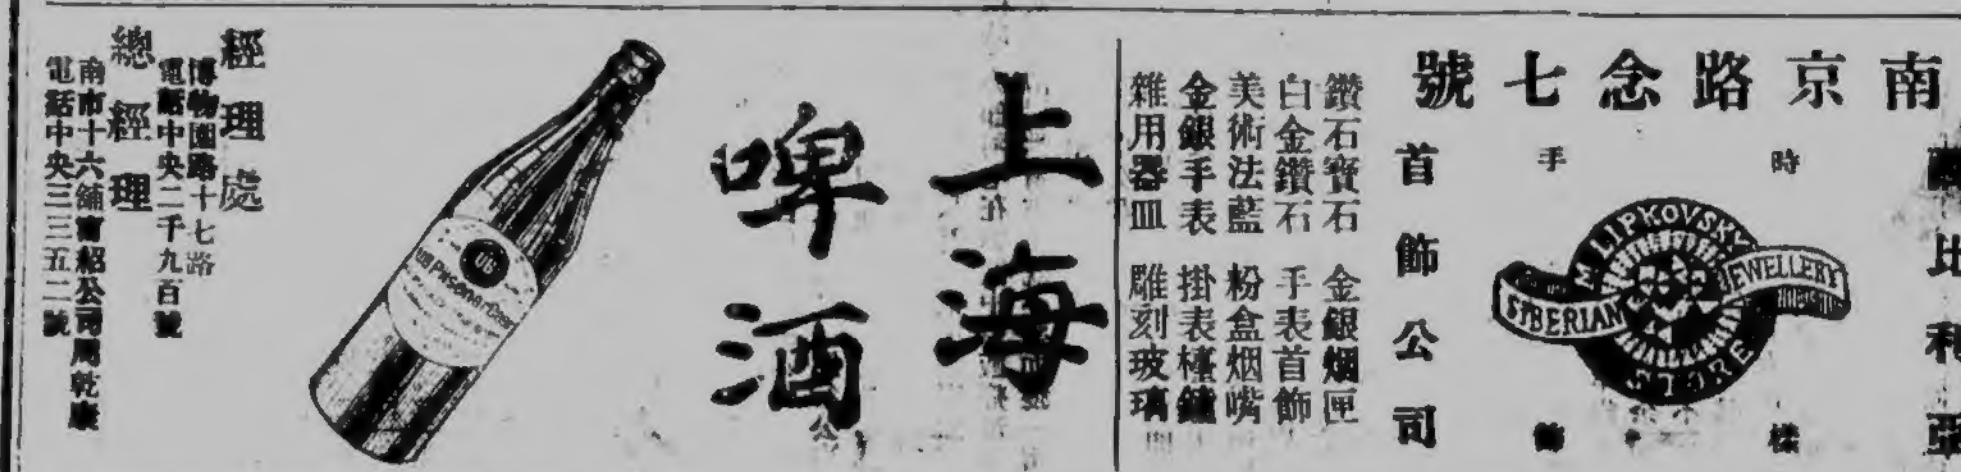 南京路念七號
西比利亞
時
手
樣
飾
M LIPKOVSKY
SIBERIAN
JEWELLERY
STORE
首飾公司
鑽石寶石 金銀烟匣
白金鑽石 手表首飾
美術法藍 粉盒烟嘴
金銀手表 掛表檯鐘
雜用器皿 雕刻玻璃
上海
啤酒
UB
UB Pilsener Beer
經理處
博物園路十七路
電話中央二千九百號
總經理
南市十六舖甯紹公司周乾康
電話中央三三五二號